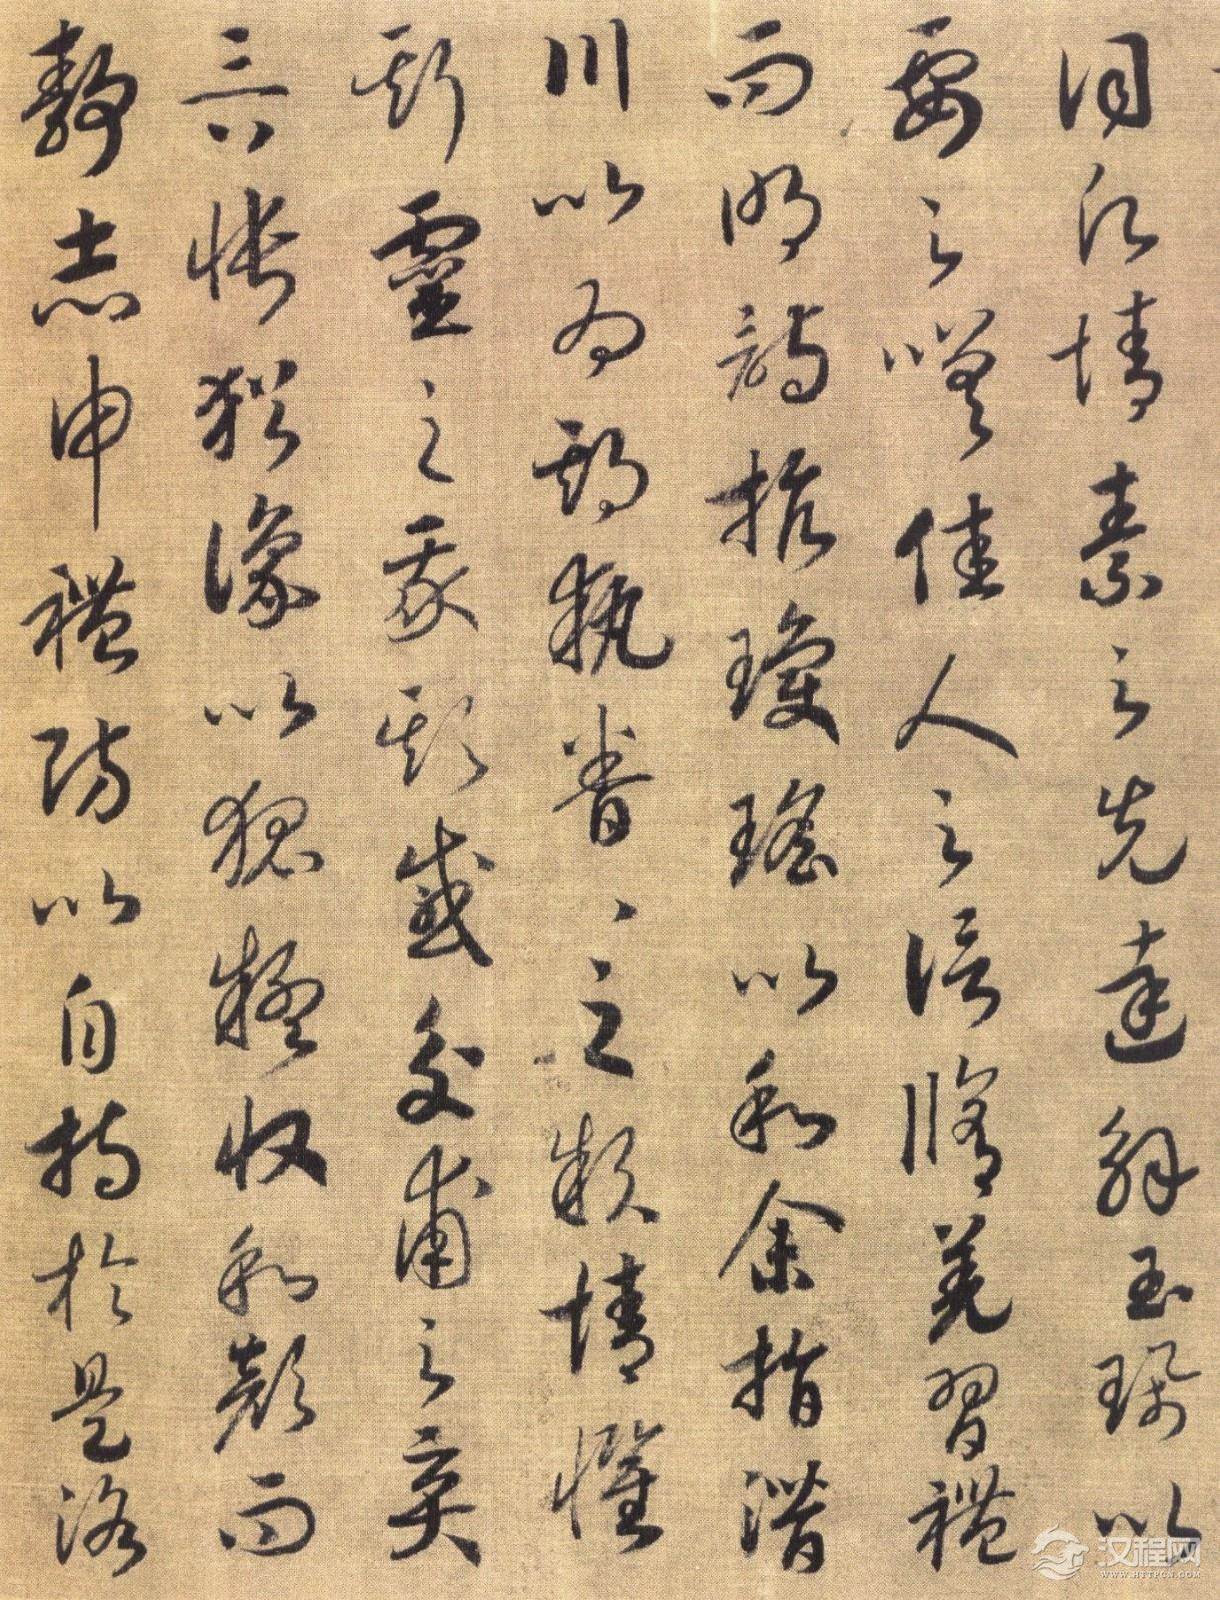 詞情素之先達解玉珮以
要之嗟佳人之信脩羌習禮
而明詩抗瓊瑤以和余指潛
川以為期執眷、之款情懼
斯靈之我欺感交甫之棄
言悵猶豫以狐疑收和顏而
靜志申禮防以自持於是洛
汉程网
WWW.HTTPCN.COM